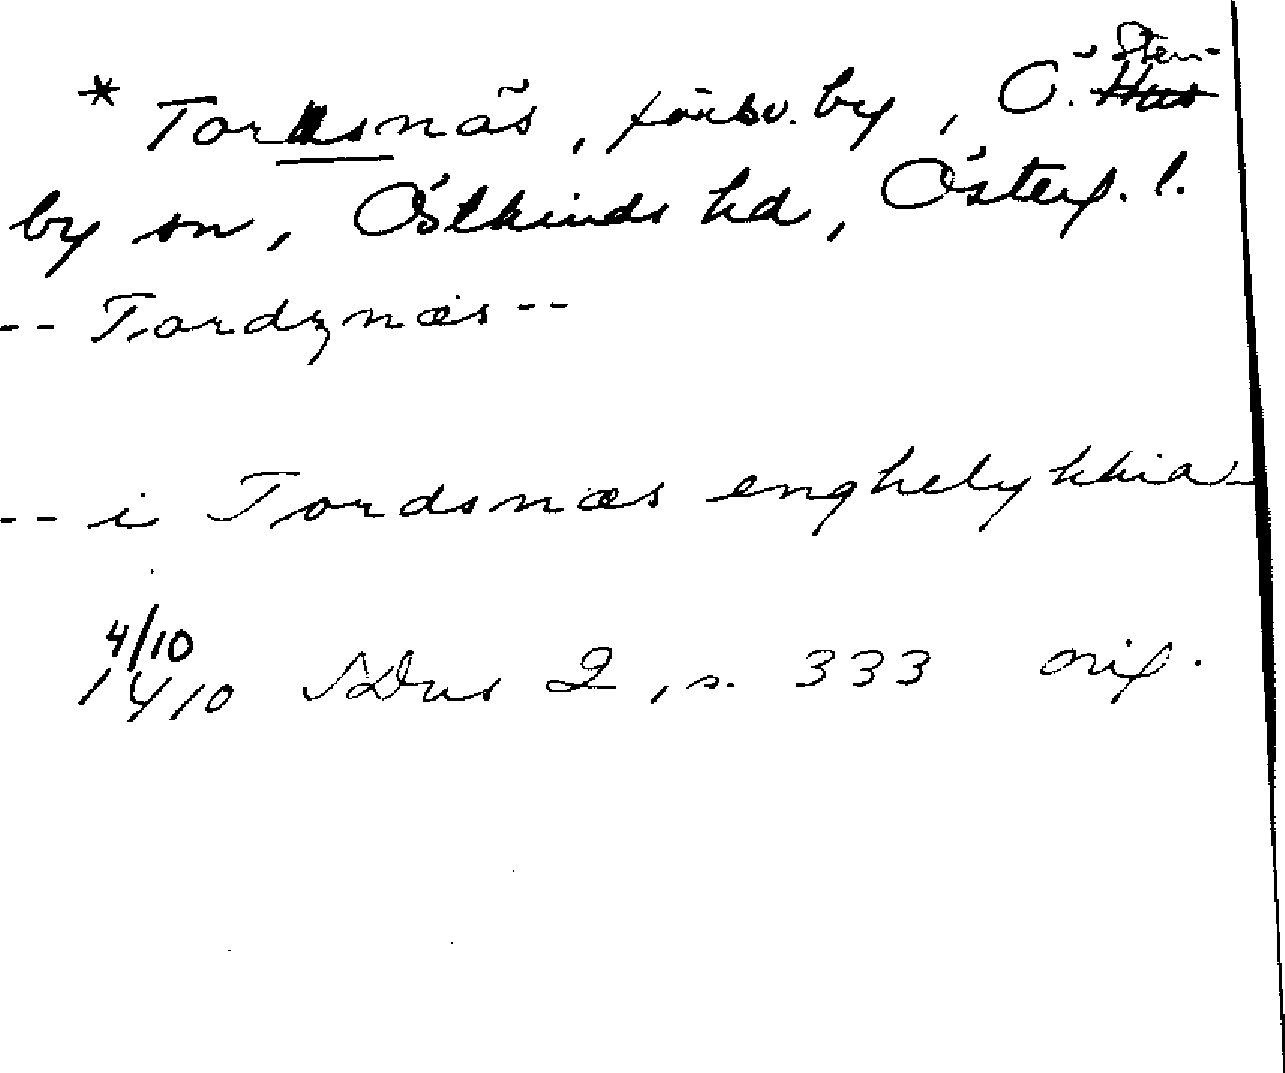 * Tordsnäs, försv. by, Ö. Sten-
by sn, Östkinds hd, Österg. l.
-- Tordznæs --
-- i Tordsnæs enghelykkia
4/10
14/10 SDns 2, s. 333 orig.